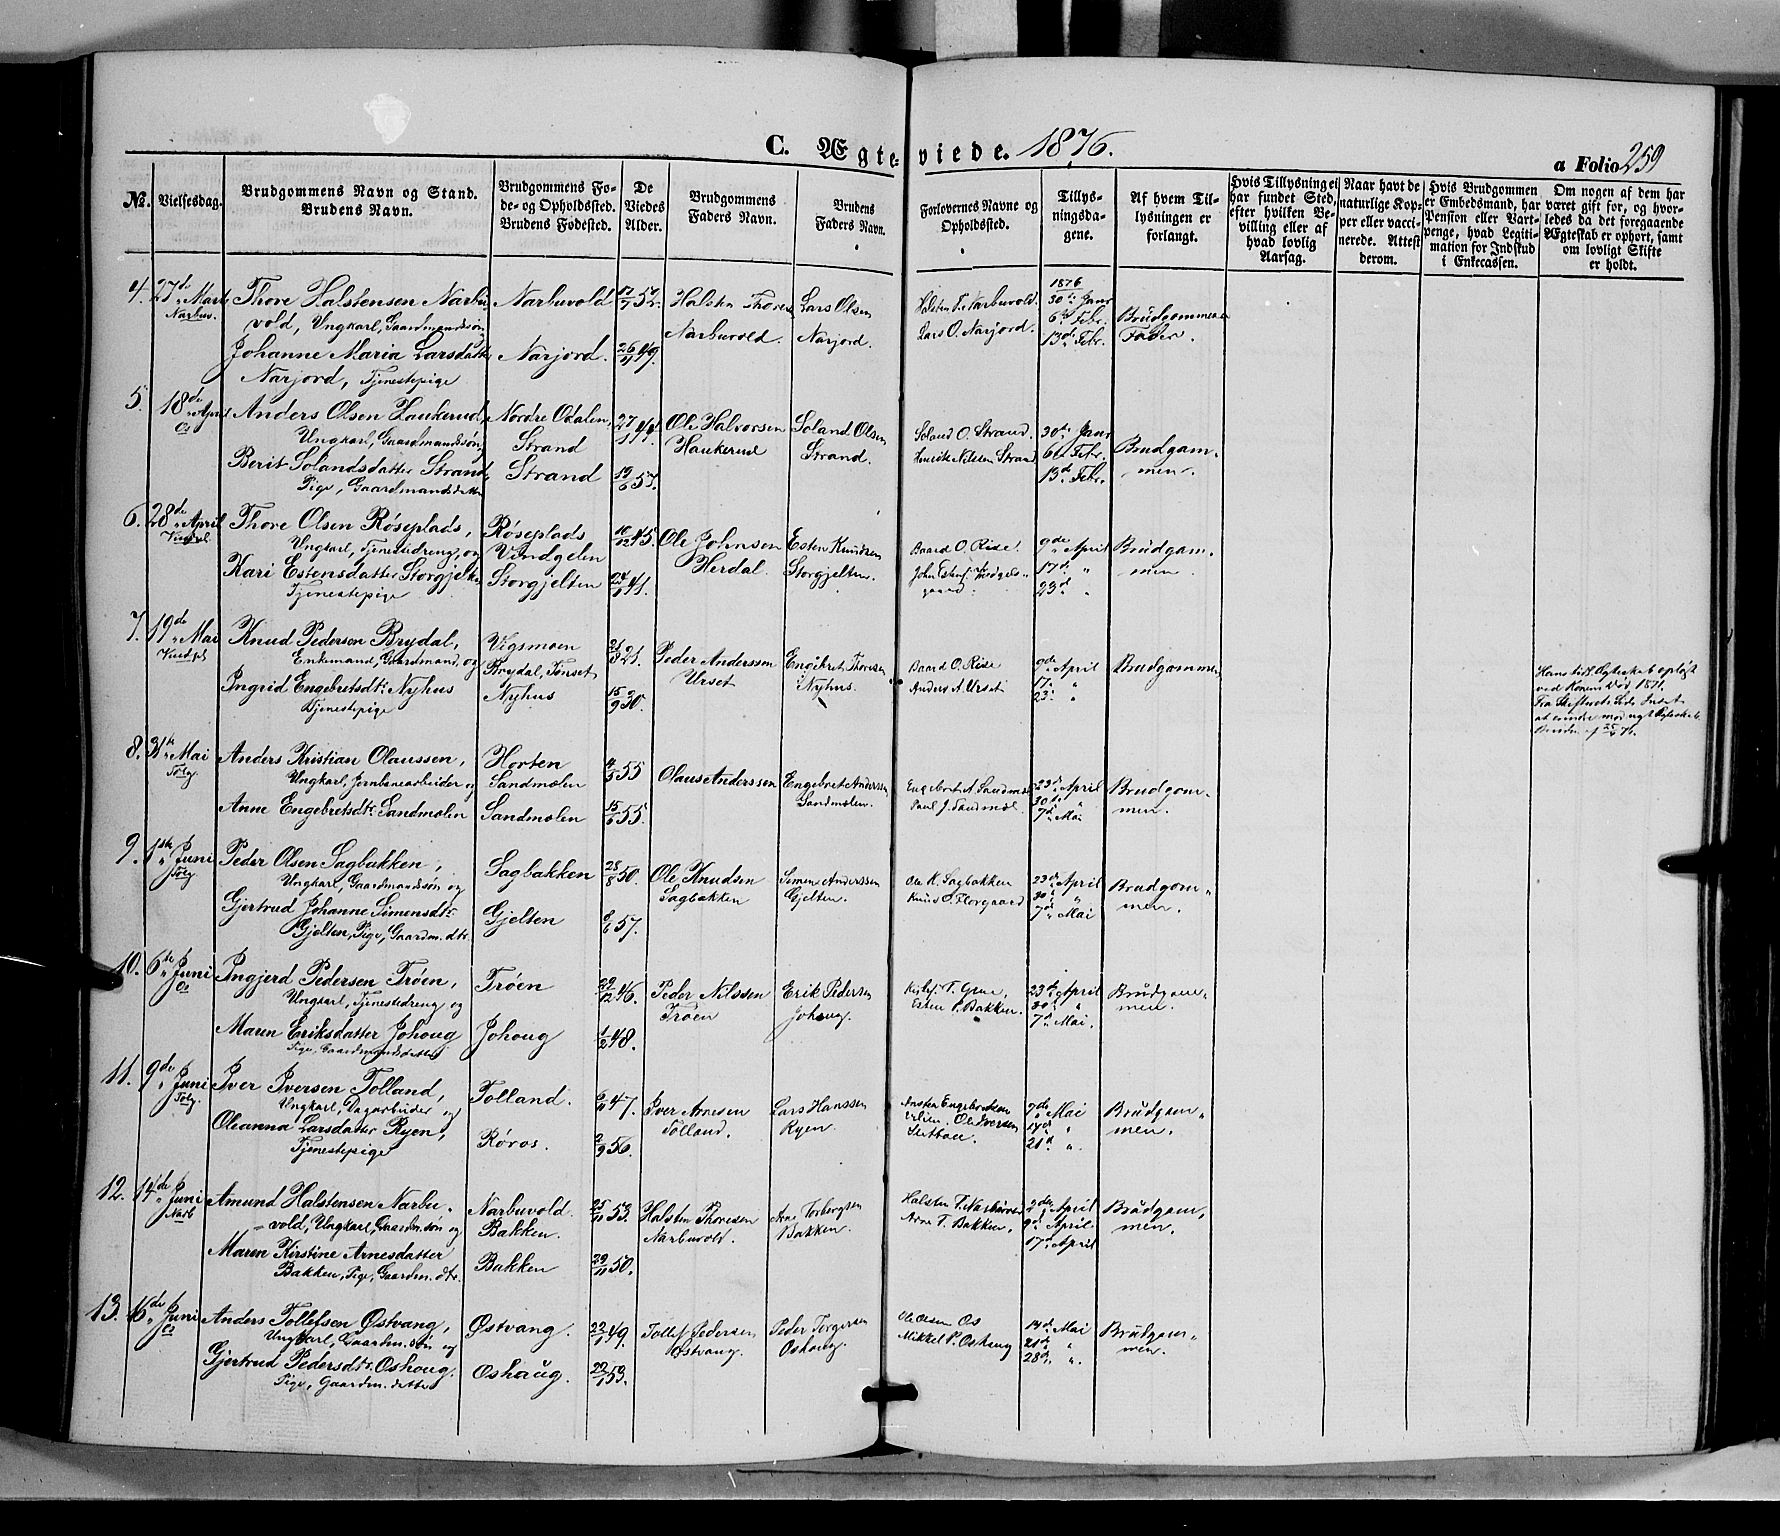 C. Ægteviede. 1876.
a Folio 259
No.
Vielsesdag.
Brudgommens Navn og Stand.
Brudens Navn.
Brudgommens Fø-
de- og Opholdssted.
Brudens Fødested.
De
Viedes
Alder.
Brudgommens
Faders Navn.
Brudens
Faders Navn.
Forlovernes Navne og
Opholdssted.
Tillys-
ningsda-
gene.
Af hvem Til-
lysningen er
forlangt.
Hvis Tillysning ei
har fundet Sted,
efter hvilken Be-
villing eller af
hvad lovlig
Aarsag.
Naar havt de
naturlige Kop-
per eller vacci-
nerede. Attest
derom.
Hvis Brudgommen
er Embedsmand, har
Pension eller Vart-
penge, hvad Legiti-
mation for Indskud
i Enkecassen.
Om nogen af dem har
været gift før, og hvor-
ledes da det foregaaende
Ægteskab er ophørt, samt
om lovligt Skifte
er holdt.
4. 27de Mart Narbuv.
Thore Halstensen Narbu-
vold, Ungkarl, Gaardmandssøn
Johanne Maria Larsdatter
Narjord, Tjenestepige
Narbuvold
Narjord.
17/7 52.
26/11 49.
Halsten Thoresen
Narbuvold.
Lars Olsen
Narjord.
Halsten T. Narbuvold.
Lars O. Narjord.
1876
30te Janr
6te Febr.
13de Febr.
Brudgommens
Fader.
5. 18de April Os
Anders Olsen Haukerud,
Ungkarl, Gaardmandssøn,
Berit Solandsdatter Strand,
Pige, Gaardmandsdatter
Nordre Odalen,
Strand
Strand
27/11 44.
19/6 57.
Ole Halvorsen
Haukerud
Soland Olsen
Strand.
Soland O. Strand.
Henrik Nilssen Strand
30te Janr
6te Febr.
13de Febr.
Brudgom-
men.
6. 28de April Vindgl
Thore Olsen Røseplads,
Ungkarl, Tjenestedreng, og
Kari Estensdatter Storgjelten
Tjenestepige
Røseplads
Vindgelen
Storgjelten
10/12 45.
24/1 41.
Ole Johnsen
Herdal.
Esten Knudsen
Storgjelten.
Baard O. Rise.
John Estens. Vindgels-
gaard.
9de April
17de "
23de "
Brudgom-
men.
7. 19de Mai Vindgl
Knud Pedersen Brydal,
Enkemand, Gaardmand, og
Ingrid Engebretsdt. Nyhus
Tjenestepige
Vigsmoen
Brydal, Tønset
Nyhus
21/8 21.
15/9 30.
Peder Anderssen
Urset
Engebret Thoresen
Nyhus.
Baard O. Rise
Anders A. Urset
9de April
17. "
23. "
Brudgommen
Hans tidl. Ægteskab opløst
ved Konens Død 1871.
Fra Skiftets Side Intet
at erindre mod nyt Ægteskab.
8. 31te Mai Tolg.
Anders Kristian Olaussen,
Ungkarl, Jernbanearbeider og
Anne Engebretsdt. Sandmølen
Horten
Sandmølen
Sandmølen
4/5 55
15/6 55.
Olaus Anderssen
Engebret Anderssen
Sandmølen.
Engebret A. Sandmøl
Paul J. Sandmøl.
23de April
30te "
7de Mai
Brudgom-
men.
9. 1ste Juni Tolg.
Peder Olsen Sagbakken,
Ungkarl, Gaardmandssøn og
Gjertrud Johanne Simensdt.
Gjelten, Pige, Gaardm. dtr.
Sagbakken
Gjelten
28/8 50.
8/6 57.
Ole Knudsen
Sagbakken
Simen Anderssen
Gjelten.
Ole K. Sagbakken
Knud O. Florgaard
23de April
30te "
7de Mai
Brudgom-
men.
10. 6te Juni Os
Ingjerd Pedersen Trøen,
Ungkarl, Tjenestedreng og
Maren Eriksdatter Johoug
Pige, Gaardmandsdatter
Trøen
Johoug
29/12 46.
1/2 48.
Peder Nilssen
Trøen
Erik Pedersen
Johoug.
Esten P. Bakken.
23de April
30te "
7de Mai.
Brudgom-
men.
11. 9de Juni Tolg.
Iver Iversen Tolland,
Ungkarl, Dagarbeider og
Oleanna Larsdatter Ryen,
Tjenestepige
Tolland.
Røros.
6/11 47.
2/9 56.
Iver Arnesen
Tolland.
Lars Hanssen
Ryen.
Ole Iversen
7de Mai
14de "
21de ".
Brudgom-
men.
12. 14de Juni Narb
Amund Halstensen Narbu-
vold, Ungkarl, Gaardm. søn og
Maren Kirstine Arnesdatter
Bakken, Pige, Gaardm. dtr.
Narbuvold.
Bakken.
Bakken
25/11 53.
29/11 50.
Halsten Thoresen
Narbuvold.
Arne Torbergsen
Bakken
Halsten T. Narbuvold
Arne T. Bakken,
2de April
9de April.
17de April
Brudgom-
men.
13. 16de Juni Os
Anders Tollefsen Østvang,
Ungkarl, Gaardm. søn og
Gjertrud Pedersdt. Oshoug.
Pige, Gaardm. datter
Østvang.
Oshaug.
22/1 49.
29/1 53.
Tollef Pedersen
Østvang.
Peder Torgersen
Oshoug.
Ole Olsen Os
Mikkel P. Oshaug
14de Mai
21de "
28de ".
Brudgom-
men.